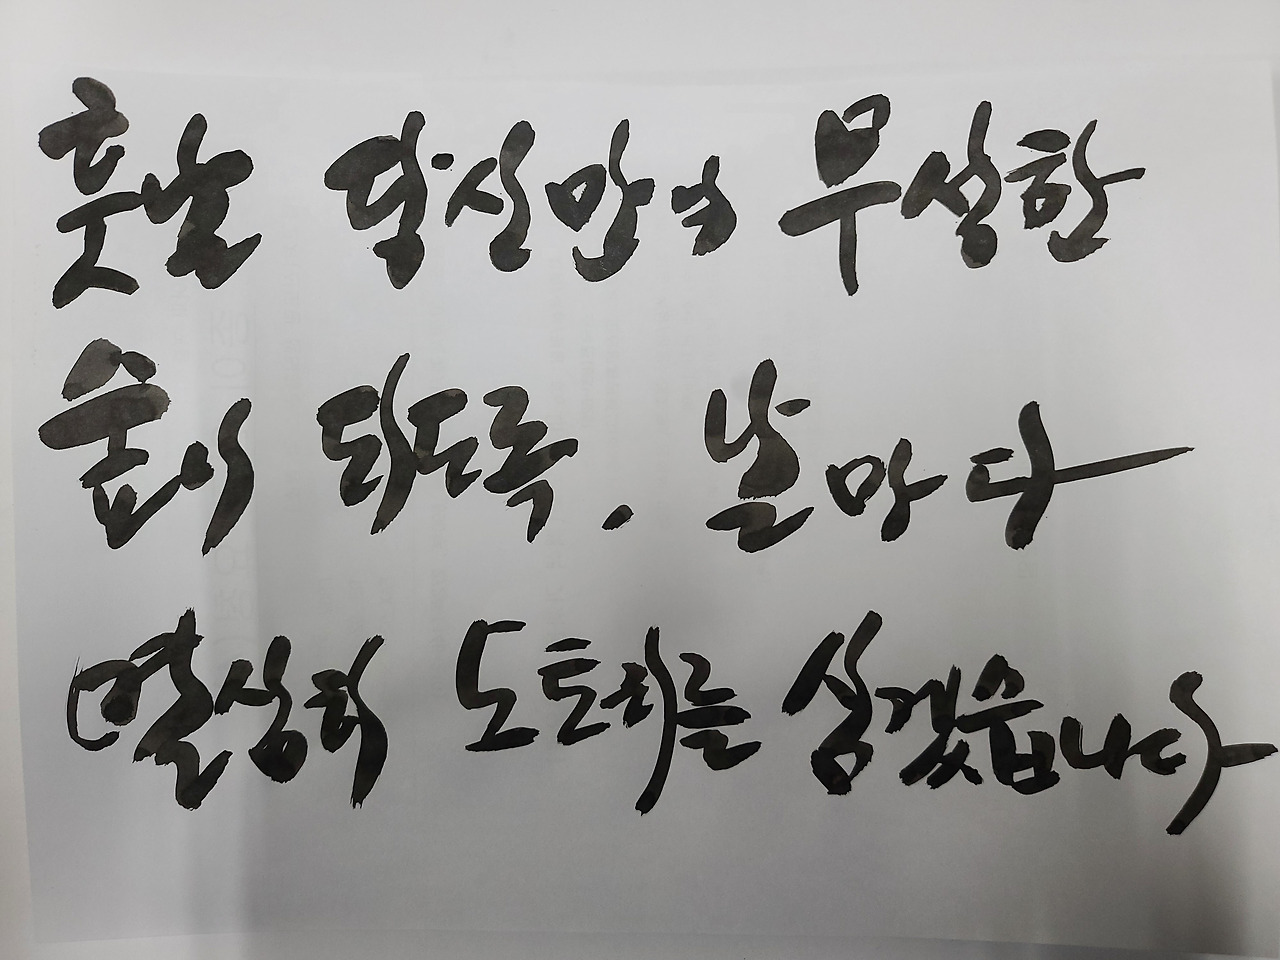 훗날 당신만의 무성한
숲이 되도록, 날마다
열심히 도토리를 심겠습니다